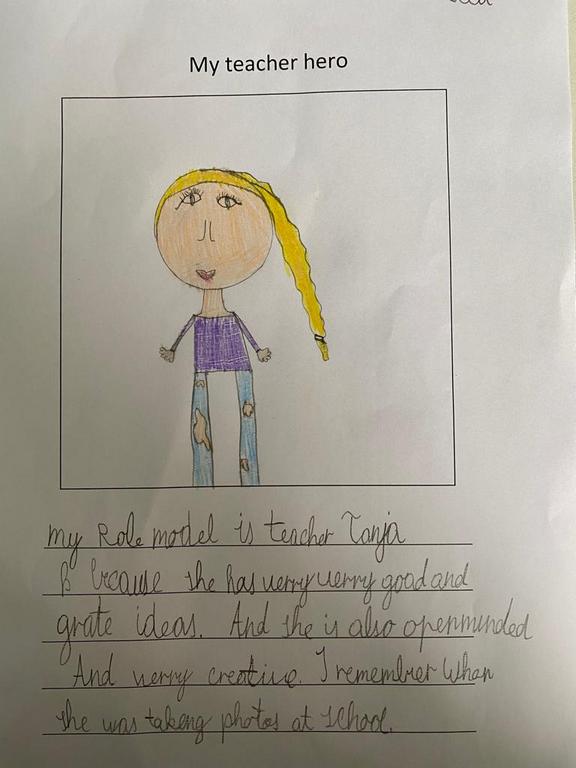 My teacher hero
my Role model is teacher Tanja
B because she has verry verry good and
grate ideas. And she is also openminded
And verry creative. I remember When
she was takeng photos at school.